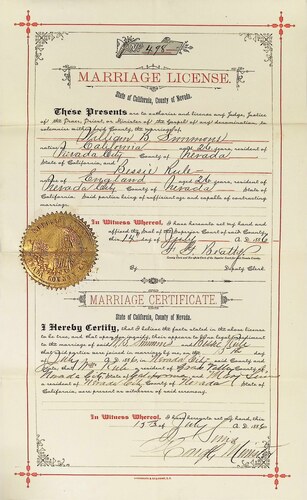 No. 498
MARRIAGE LICENSE.
State of California, County of Nevada.
These Presents are to authorize and license any Judge, Justice
of the Peace, Priest, or Minister of the Gospel of any denomination, to
solemnize within said County, the marriage of
William B. Simmons
native of California aged 26 years, resident of
Nevada City County of Nevada
State of California, and Bessie Kyle
native of England aged 26 years, resident of
Nevada City County of Nevada State of
California. Said parties being of sufficient age and capable of contracting
marriage.
In Witness Whereof, I have hereunto set my hand and
affixed the Seal of the Superior Court of said County
this 14th day of July A. D. 1886
Deputy Clerk.
MARRIAGE CERTIFICATE.
State of California, County of Nevada.
I Hereby Certify, that I believe the facts stated in the above license
to be true, and that upon due inquiry, there appears to be no legal impediment
to the marriage of said and Bessie Kyle
that said parties were joined in marriage by me, on the 15th day
of July A. D. 1886, in Nevada City said County and
State; that Kyle a resident of Grass Valley County of
Nevada State of California and
a resident of Nevada City County of Nevada State of
California, are present as witnesses of said ceremony.
In Witness Whereof, I have hereunto set my hand, this
15th day of July A. D. 1886
Minister